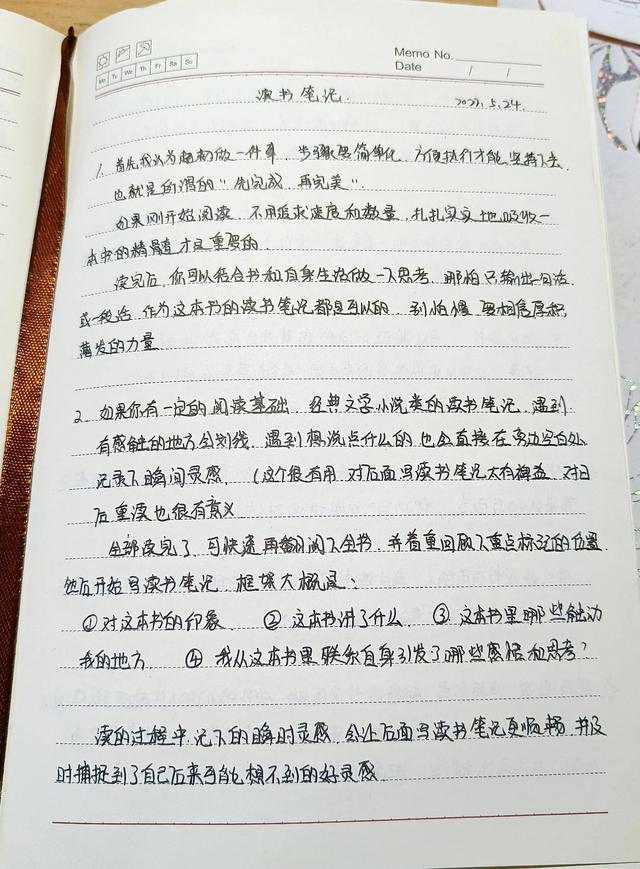 Memo No.
Mo Tu We Th Fr Sa Su
Date / /
读书笔记
5.24.
1. 首先我认为起初做一件事, 步骤要简单化, 方便执行才能坚持下去,
也就是所谓的"先完成, 再完美".
如果刚开始阅读, 不用追求速度和数量, 扎扎实实地吸收一
本书的精髓才是重要的.
读完后, 你可以结合书和自身生活做一下思考, 哪怕只输出一句话
或一段话, 作为这本书的读书笔记都是可以的, 别怕慢, 要相信厚积
薄发的力量
2. 如果你有一定的阅读基础, 经典文学小说类的读书笔记, 遇到
有感触的地方会划线, 遇到想说点什么的也会直接在旁边空白处
记录下瞬间灵感, (这个很有用, 对后面写读书笔记大有裨益, 对日
后重读也很有意义
全部读完了, 可快速再翻阅下全书, 并着重回顾下重点标记的位置,
然后开始写读书笔记, 框架大概是:
①对这本书的印象 ②这本书讲了什么 ③这本书里哪些触动
我的地方 ④我从这本书里联系自身引发了哪些感悟和思考?
读的过程中, 记下的瞬时灵感, 会让后面写读书笔记更顺畅, 并及
时捕捉到了自己后来可能想不到的好灵感